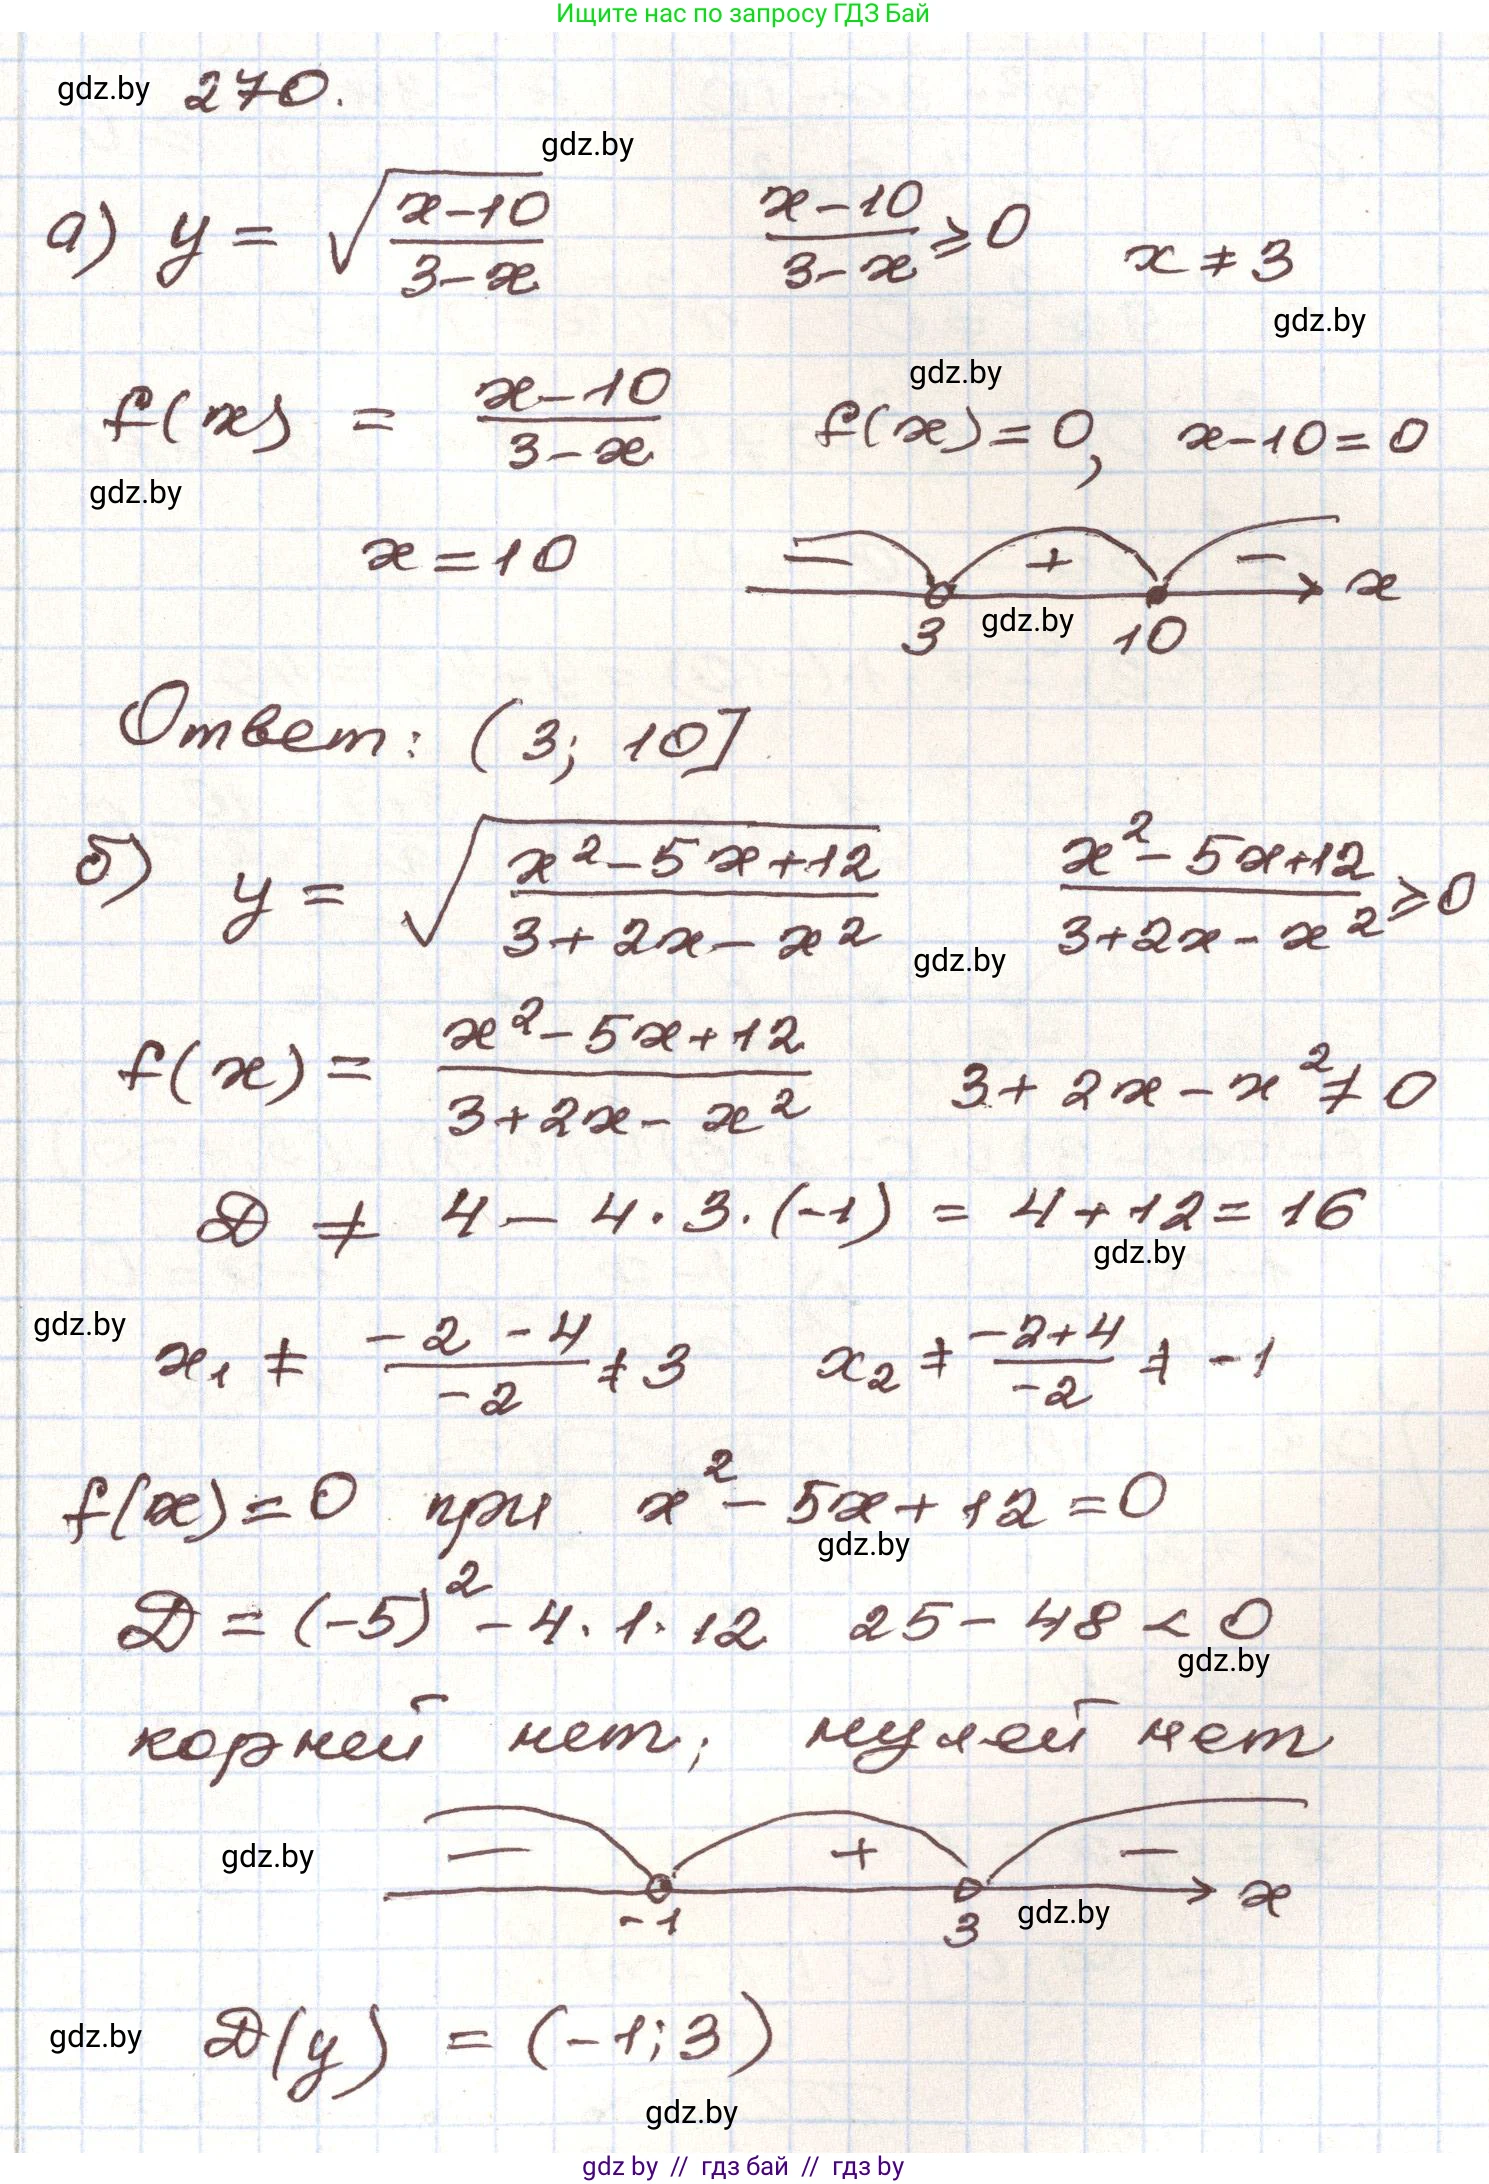 Ищите нас по запросу ГДЗ Бай
gdz.by 270.
gdz.by
а) y = √((x-10)/(3-x))   (x-10)/(3-x) ⩾ 0   x ≠ 3
gdz.by
gdz.by
f(x) = (x-10)/(3-x)   f(x) = 0, x-10=0
gdz.by
x = 10   − + − x
gdz.by
3 10
Ответ: (3; 10]
б) y = √((x²-5x+12)/(3+2x-x²))   (x²-5x+12)/(3+2x-x²) ⩾ 0
gdz.by
f(x) = (x²-5x+12)/(3+2x-x²)   3+2x-x² ≠ 0
D ≠ 4 - 4·3·(-1) = 4+12 = 16
gdz.by
gdz.by
x₁ ≠ (-2-4)/(-2) ≠ 3   x₂ ≠ (-2+4)/(-2) ≠ -1
f(x) = 0 при x²-5x+12=0
gdz.by
D = (-5)² - 4·1·12 25-48 < 0
gdz.by
корней нет; нулей нет
gdz.by − + −
x
gdz.by
-1 3
gdz.by D(y) = (-1;3)
gdz.by
gdz by // гдз бай // гдз by